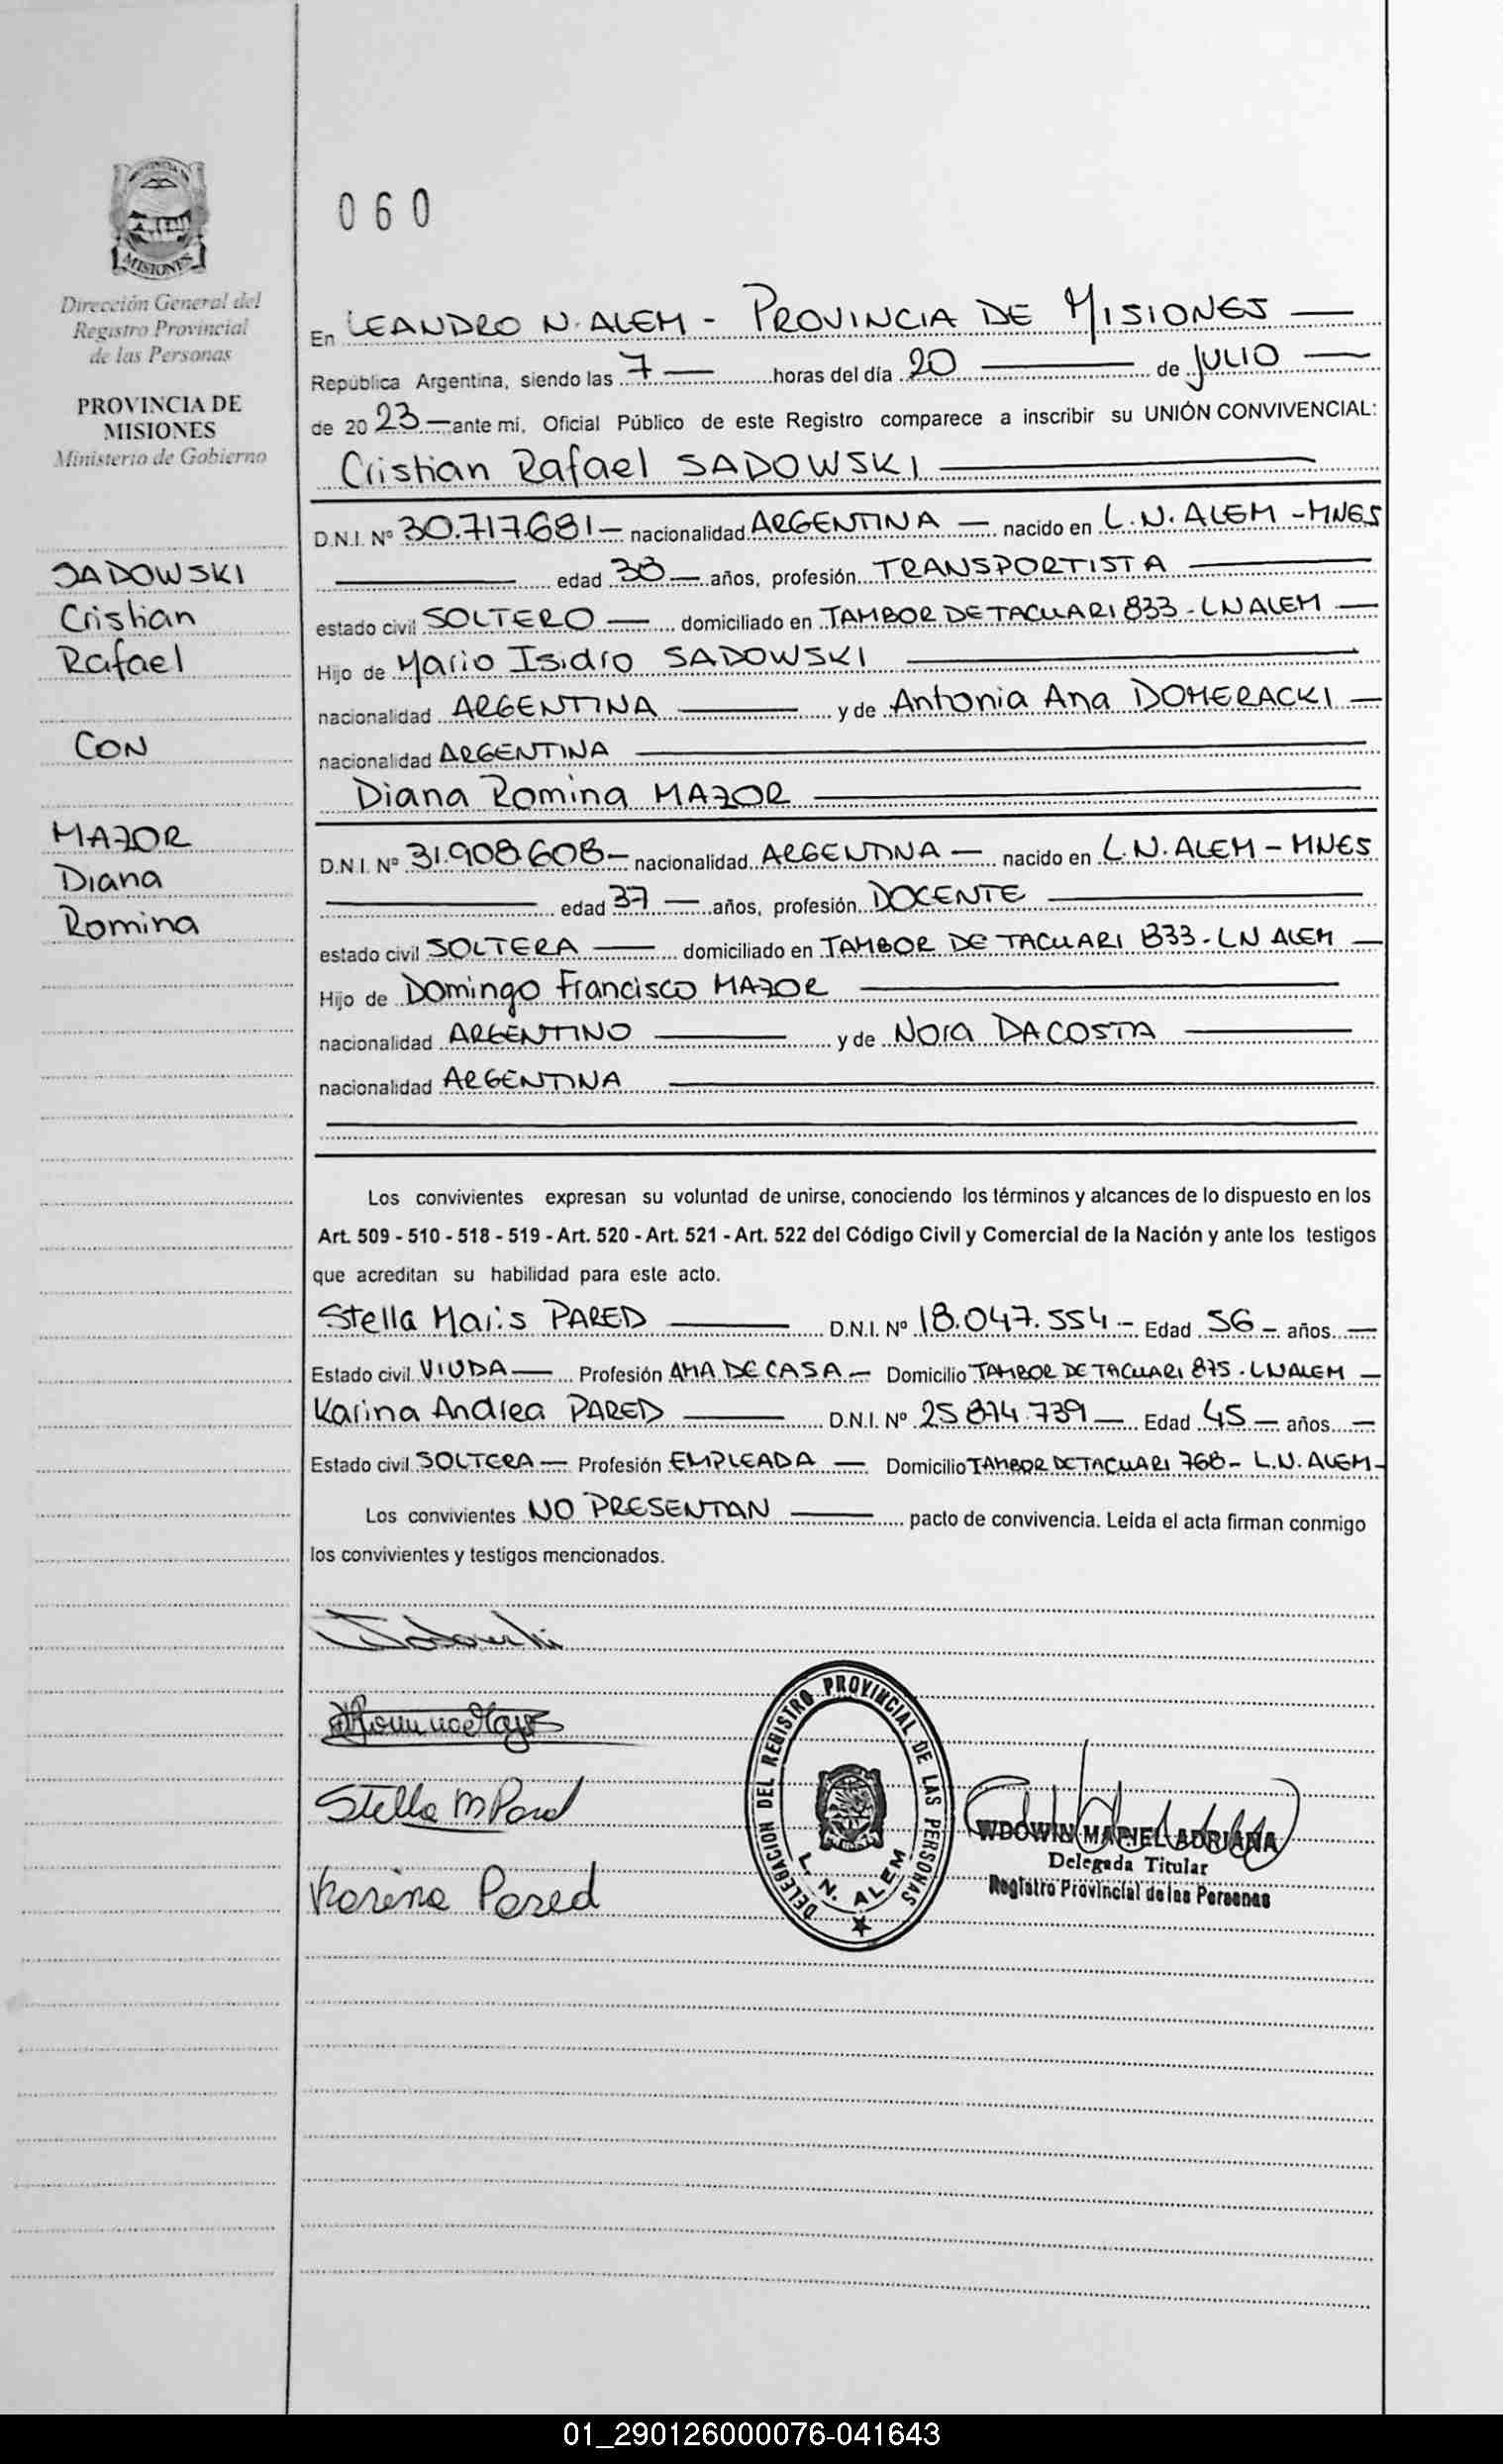 060
Dirección General del
Registro Provincial
de las Personas
PROVINCIA DE
MISIONES
Ministerio de Gobierno
SADOWSKI
Cristian
Rafael
CON
MAJOR
Diana
Romina
En LEANDRO N. ALEM - PROVINCIA DE MISIONES
República Argentina, siendo las 7 horas del día 20 de JULIO
de 2023 ante mí, Oficial Público de este Registro comparece a inscribir su UNIÓN CONVIVENCIAL:
Cristian Rafael SADOWSKI
D.N.I. Nº 30.717.681- nacionalidad ARGENTINA nacido en L.N. ALEM - MNES
edad 38 años, profesión TRANSPORTISTA
estado civil SOLTERO domiciliado en TAMBOR DE TACUARI 833 - LN ALEM
Hijo de Mario Isidro SADOWSKI
nacionalidad ARGENTINA y de Antonia Ana DOMERACKI
nacionalidad ARGENTINA
Diana Romina MAJOR
D.N.I. Nº 31.908.608- nacionalidad ARGENTINA nacido en L.N. ALEM - MNES
edad 37 años, profesión DOCENTE
estado civil SOLTERA domiciliado en TAMBOR DE TACUARI 833 - LN ALEM
Hijo de Domingo Francisco MAJOR
nacionalidad ARGENTINO y de Nora DACOSTA
nacionalidad ARGENTINA
Los convivientes expresan su voluntad de unirse, conociendo los términos y alcances de lo dispuesto en los
Art. 509 - 510 - 518 - 519 - Art. 520 - Art. 521 - Art. 522 del Código Civil y Comercial de la Nación y ante los testigos
que acreditan su habilidad para este acto.
Stella Maris PARED D.N.I. Nº 18.047.554 - Edad 56 - años
Estado civil VIUDA Profesión AMA DE CASA Domicilio TAMBOR DE TACUARI 875 - LN ALEM
Karina Andrea PARED D.N.I. Nº 25.874.739 Edad 45 años
Estado civil SOLTERA Profesión EMPLEADA Domicilio TAMBOR DE TACUARI 768 - L.N. ALEM-
Los convivientes NO PRESENTAN pacto de convivencia. Leída el acta firman conmigo
los convivientes y testigos mencionados.
Stella M Pared
Karina Pared
DELEGACION DEL REGISTRO PROVINCIAL DE LAS PERSONAS
L. N. ALEM
WDOWIN MARIEL ADRIANA
Delegada Titular
Registro Provincial de las Personas
01_290126000076-041643